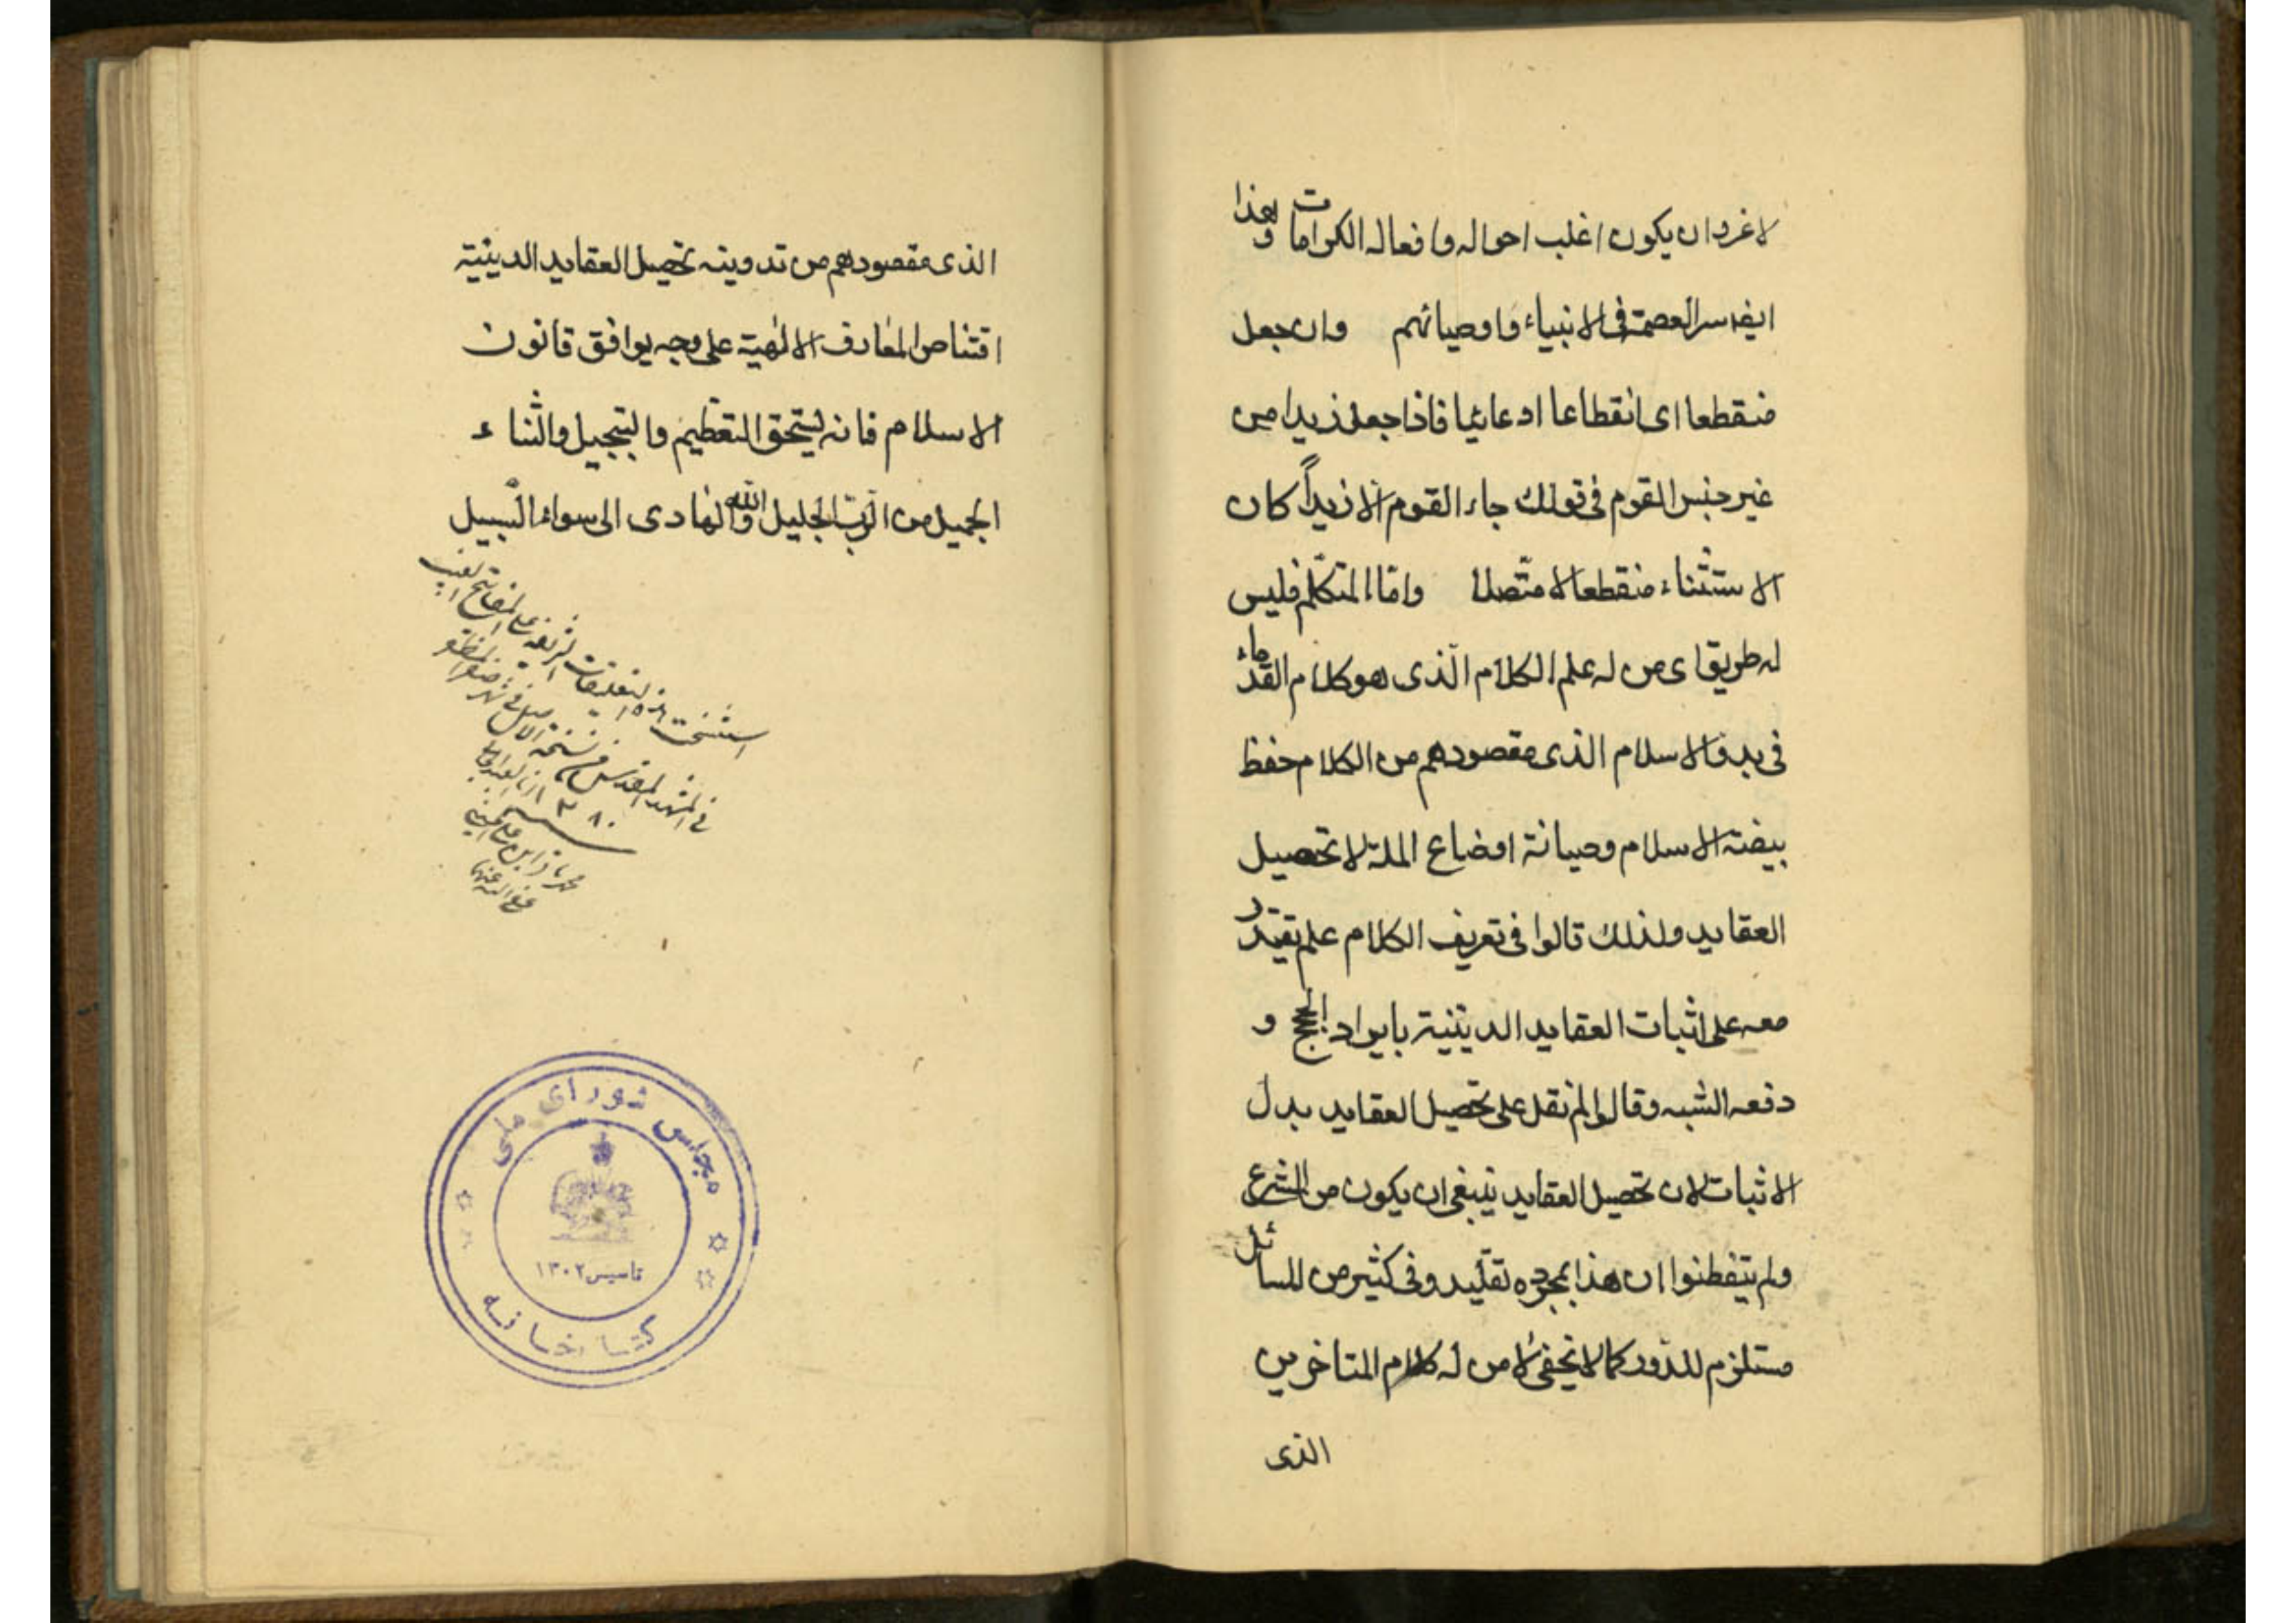 لا غرو ان يكون اغلب احواله وافعاله الكرامات وبهذا
ايضا سر العصمة فى الانبياء واوصيائهم وان جعل
منقطعا اى انقطاعا ادعائيا فاذا جعل زيدا من
غير جنس القوم فى قولك جاء القوم الا زيداً كان
الاستثناء منقطعا لا متصلا وامّا المتكلّم فليس
له طريق اى من له علم الكلام الّذى هو كلام القدماء
فى بدو الاسلام الذى مقصودهم من الكلام حفظ
بيضة الاسلام وصيانة اوضاع الملة لا تحصيل
العقايد ولذلك قالوا فى تعريف الكلام علم يقتدر
معه على اثبات العقايد الدينية بايراد الحجج و
دفعه الشبه وقالوا لم نقل على تحصيل العقايد بدل
الاثبات لان تحصيل العقايد ينبغى ان يكون من الشرع
ولم يتفطنوا ان هذا بمجرده تقليد وفى كثير من المسائل
مستلزم للدّور كما لا يخفى لا من له كلام المتاخرين
الذى
الذى مقصودهم من تدوينه تحصيل العقايد الدينية
اقتناص المعارف الالٰهية على وجه يوافق قانون
الاسلام فانه يستحق التعظيم والتبجيل والثناء
الجميل من الرّبّ الجليل والله الهادى الى سواء السّبيل
استنسخت هذه التعليقات الشريفة على المفاتيح الغيب
فى المشهد المقدس من نسخة الاصل فى شهر صفر المظفر
١٣٨٠ وانا العبد
محمد باقر ابن
عفى الله عنهما
مجلس شوراى ملى
تاسيس ١٣٠٢
كتابخانه